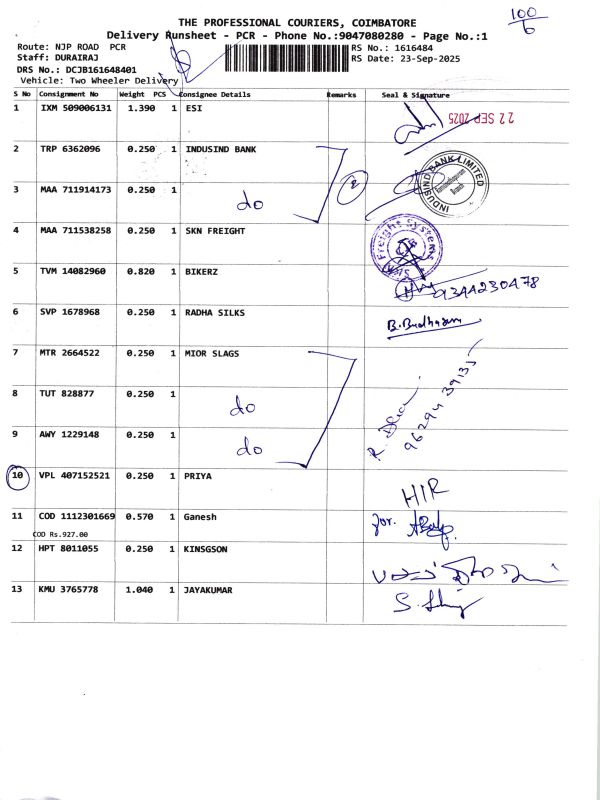 100
6
THE PROFESSIONAL COURIERS, COIMBATORE
Delivery Runsheet - PCR - Phone No.:9047080280 - Page No.:1
Route: NJP ROAD PCR
RS No.: 1616484
Staff: DURAIRAJ
RS Date: 23-Sep-2025
DRS No.: DCJB161648401
Vehicle: Two Wheeler Delivery
S No Consignment No Weight PCS Consignee Details Remarks Seal & Signature
1 IXM 509006131 1.390 1 ESI
22 SEP 2025
2 TRP 6362096 0.250 1 INDUSIND BANK
INDUSIND BANK LIMITED
Branch
3 MAA 711914173 0.250 1 do
2
4 MAA 711538258 0.250 1 SKN FREIGHT
SKN Freight Systems
5 TVM 14082960 0.820 1 BIKERZ
9344230478
6 SVP 1678968 0.250 1 RADHA SILKS
7 MTR 2664522 0.250 1 MIOR SLAGS
8 TUT 828877 0.250 1 do
96294 39135
9 AWY 1229148 0.250 1 do
10 VPL 407152521 0.250 1 PRIYA
HIR
11 COD 1112301669 0.570 1 Ganesh
for.
COD Rs.927.00
12 HPT 8011055 0.250 1 KINSGSON
13 KMU 3765778 1.040 1 JAYAKUMAR